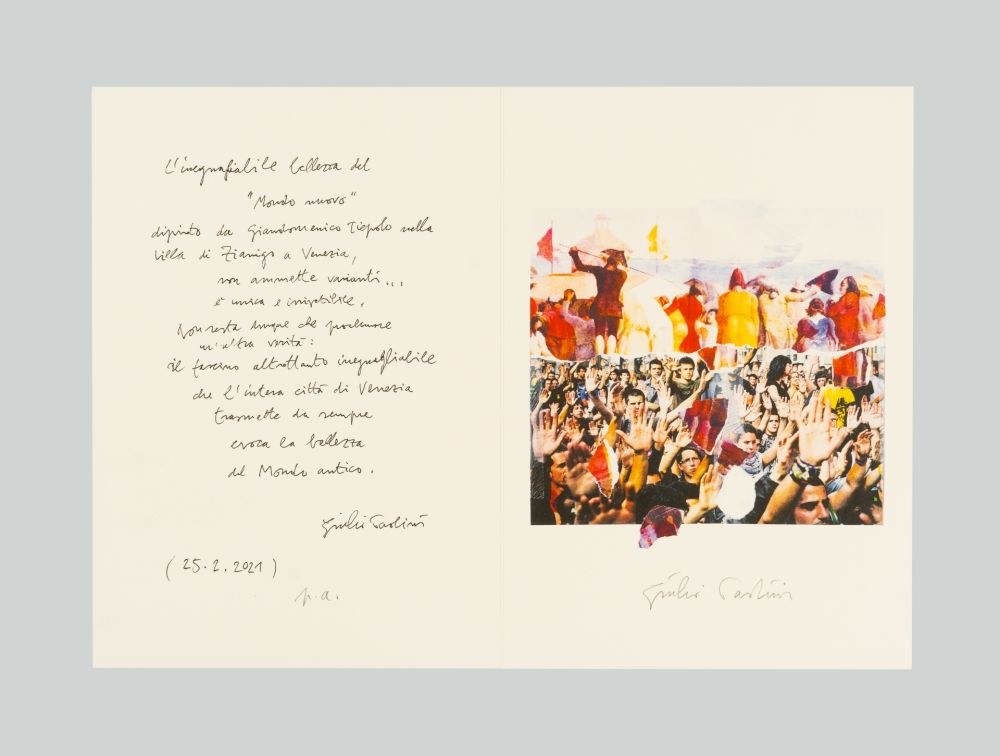 L'ineguagliabile bellezza del
"Mondo nuovo"
dipinto da Giandomenico Tiepolo nella
villa di Zianigo a Venezia,
non ammette varianti...
è unica e irripetibile.
Non resta dunque che proclamare
un'altra verità:
il fascino altrettanto ineguagliabile
che l'intera città di Venezia
trasmette da sempre
evoca la bellezza
del Mondo antico.
Giulio Paolini
(25.2.2021)
p.a.
Giulio Paolini